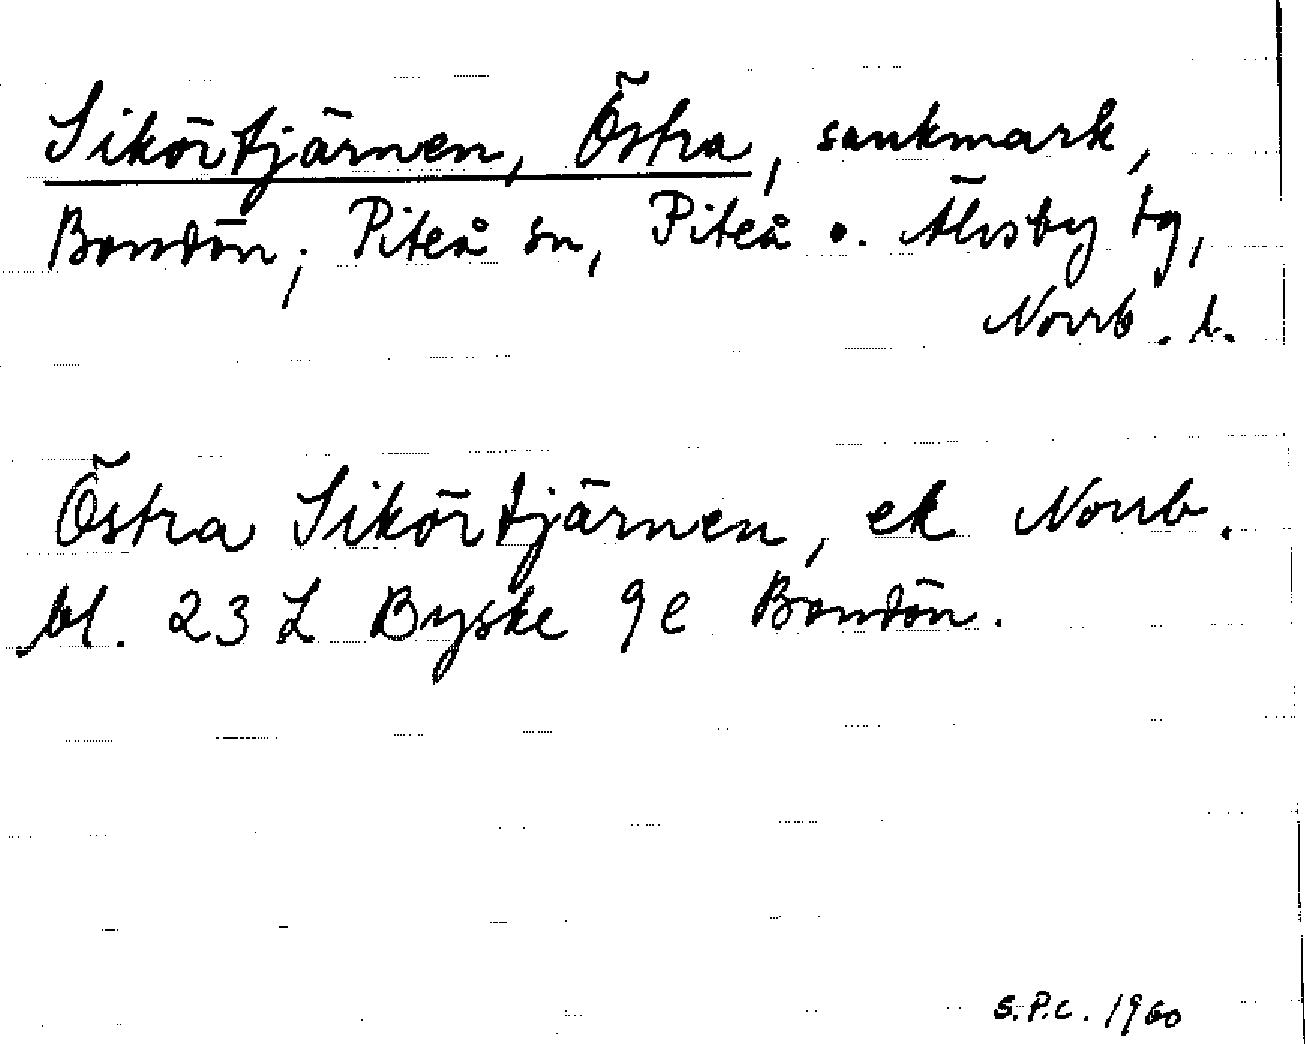 Sikörtjärnen, Östra, sankmark,
Bondön, Piteå sn, Piteå o. Älvsby tg,
Norrb. l.
Östra Sikörtjärnen, ek Norrb.
bl. 23 L Byske 9e Bondön.
S.P.C. 1960